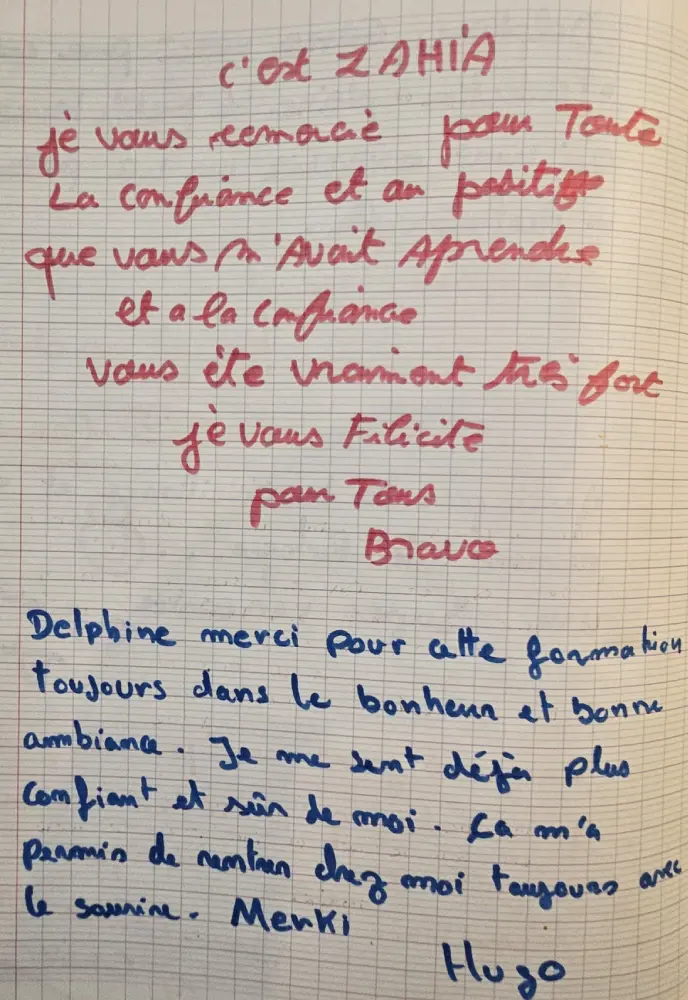 c'est ZAHIA
je vous remercie pour Toute
La confiance et au positif
que vous m'Avait Aprendre
et a la confiance
vous éte vraiment très fort
je vous Filicite
pour Tous
Bravo
Delphine merci pour cette formation
toujours dans le bonheur et bonne
ambiance. Je me sent déjà plus
confiant et sûr de moi. Ça m'a
permis de rentrer chez moi toujours avec
le sourire. Merki
Hugo